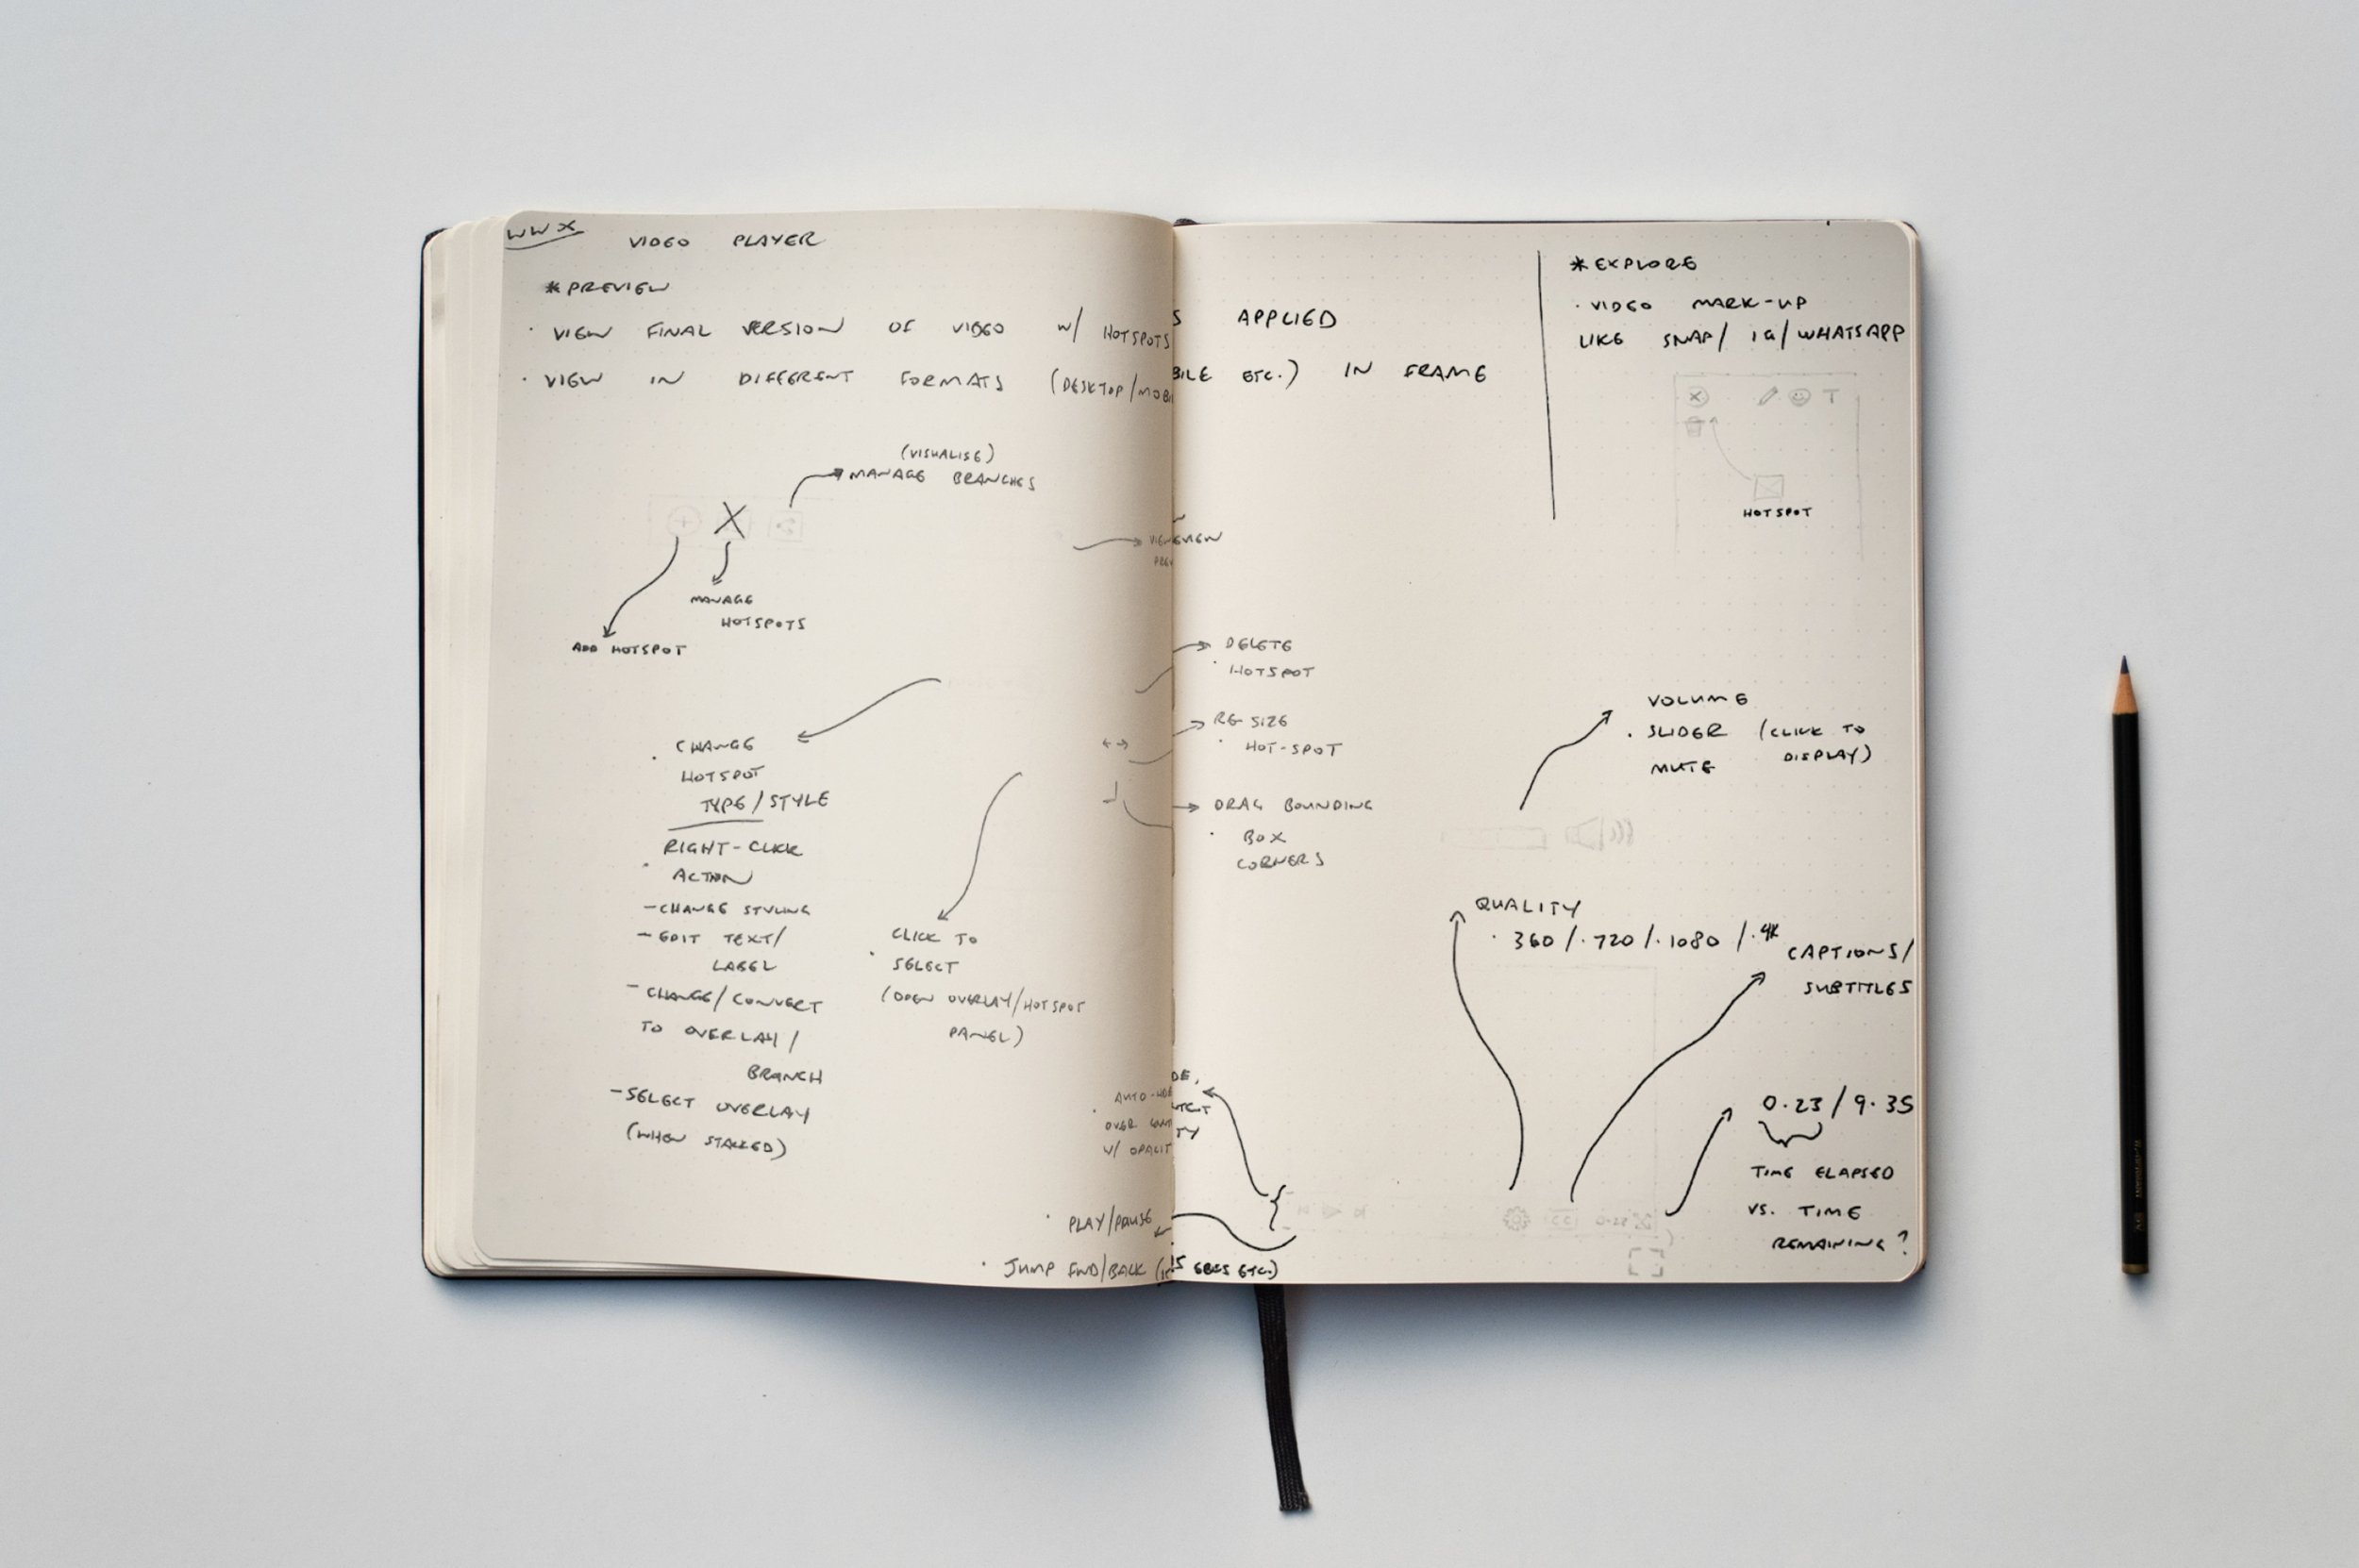 WWX
VIDEO PLAYER
*PREVIEW
· VIEW FINAL VERSION OF VIDEO W/ HOTSPOTS APPLIED
· VIEW IN DIFFERENT FORMATS (DESKTOP/MOBILE ETC.) IN FRAME
(VISUALISE)
MANAGE BRANCHES
X
MANAGE
HOTSPOTS
ADD HOTSPOT
· CHANGE
HOTSPOT
TYPE/STYLE
RIGHT-CLICK
· ACTION
-CHANGE STYLING
- EDIT TEXT/
LABEL
- CHANGE/CONVERT
TO OVERLAY/
BRANCH
-SELECT OVERLAY
(WHEN STACKED)
CLICK TO
· SELECT
(OPEN OVERLAY/HOTSPOT
PANEL)
DELETE
· HOTSPOT
RE-SIZE
· HOT-SPOT
DRAG BOUNDING
· BOX
CORNERS
· AUTO-HIDE,
OVER CONTENT
W/ OPACITY
· PLAY/PAUSE
· JUMP FWD/BACK (15 SECS ETC.)
*EXPLORE
· VIDEO MARK-UP
LIKE SNAP/ IG/WHATSAPP
T
HOTSPOT
VOLUME
· SLIDER (CLICK TO
DISPLAY)
MUTE
QUALITY
· 360 /· 720 /· 1080 /· 4K
CAPTIONS/
SUBTITLES
0.23/9.35
TIME ELAPSED
VS. TIME
REMAINING?